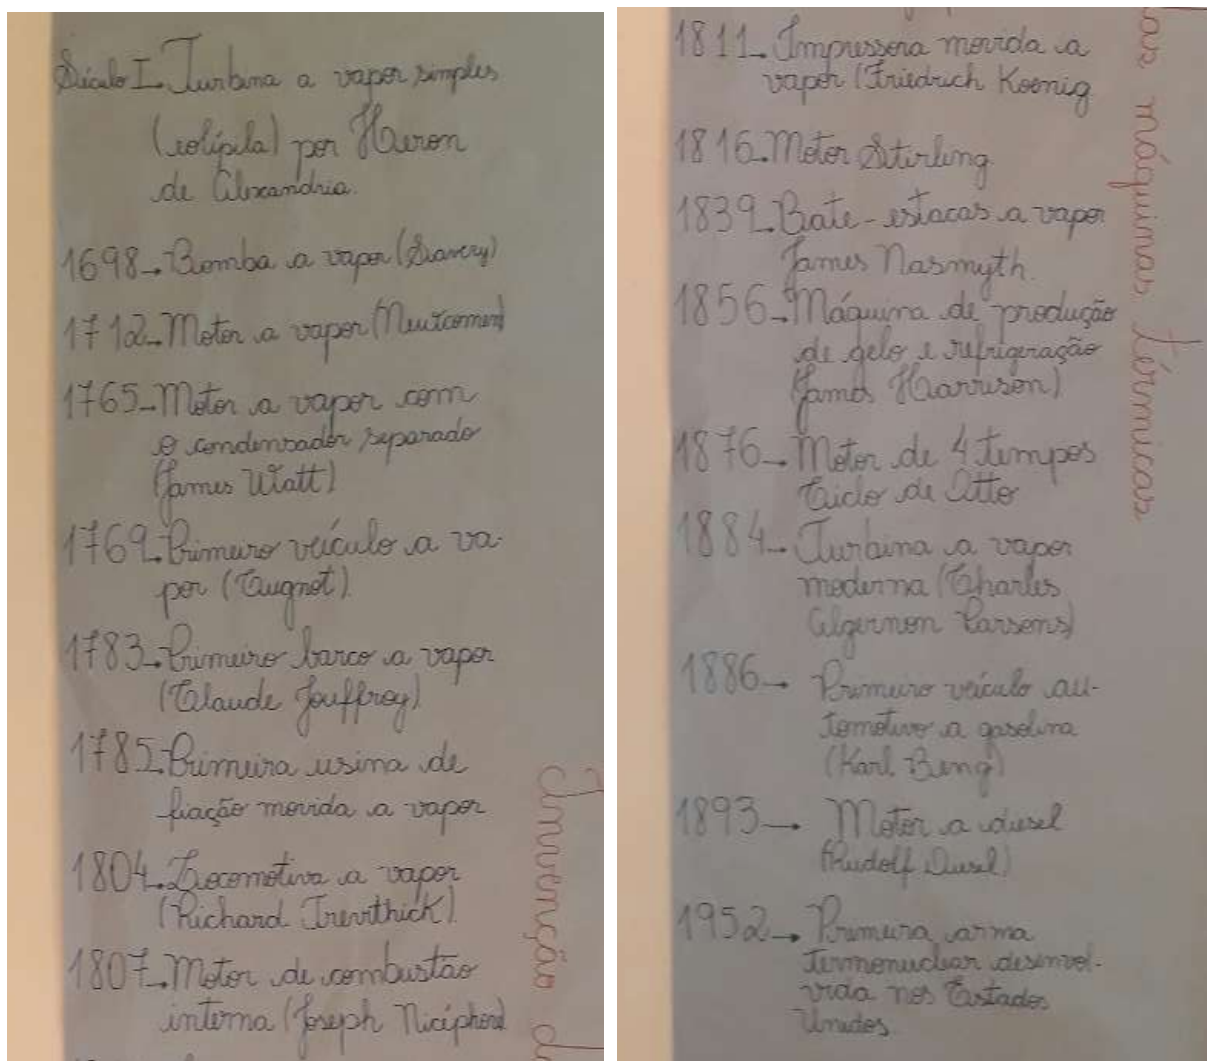 Século I → Turbina a vapor simples
(eolípila) por Heron
de Alexandria.
1698 → Bomba a vapor (Savery)
1712 → Motor a vapor (Newcomen)
1765 → Motor a vapor com
o condensador separado
(James Watt)
1769 → Primeiro veículo a va-
por (Cugnot)
1783 → Primeiro barco a vapor
(Claude Jouffroy)
1785 → Primeira usina de
fiação movida a vapor
1804 → Locomotiva a vapor
(Richard Trevithick)
1807 → Motor de combustão
interna (Joseph Nicéphore)
Invenção d
1811 → Impressora movida a
vapor (Friedrich Koenig
1816 → Motor Stirling
1839 → Bate-estacas a vapor
James Nasmyth.
1856 → Máquina de produção
de gelo e refrigeração
(James Harrison)
1876 → Motor de 4 tempos
Ciclo de Otto
1884 → Turbina a vapor
moderna (Charles
Algernon Parsons)
1886 → Primeiro veículo au-
tomotivo a gasolina
(Karl Beng)
1893 → Motor a diesel
(Rudolf Diesel)
1952 → Primeira arma
termonuclear desenvol-
vida nos Estados
Unidos.
das máquinas térmicas